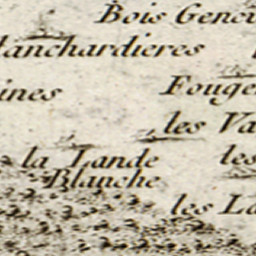 Bois Genev
lanchardieres
ines
Fouge
les Va
la Lande
Blanche
les
les La